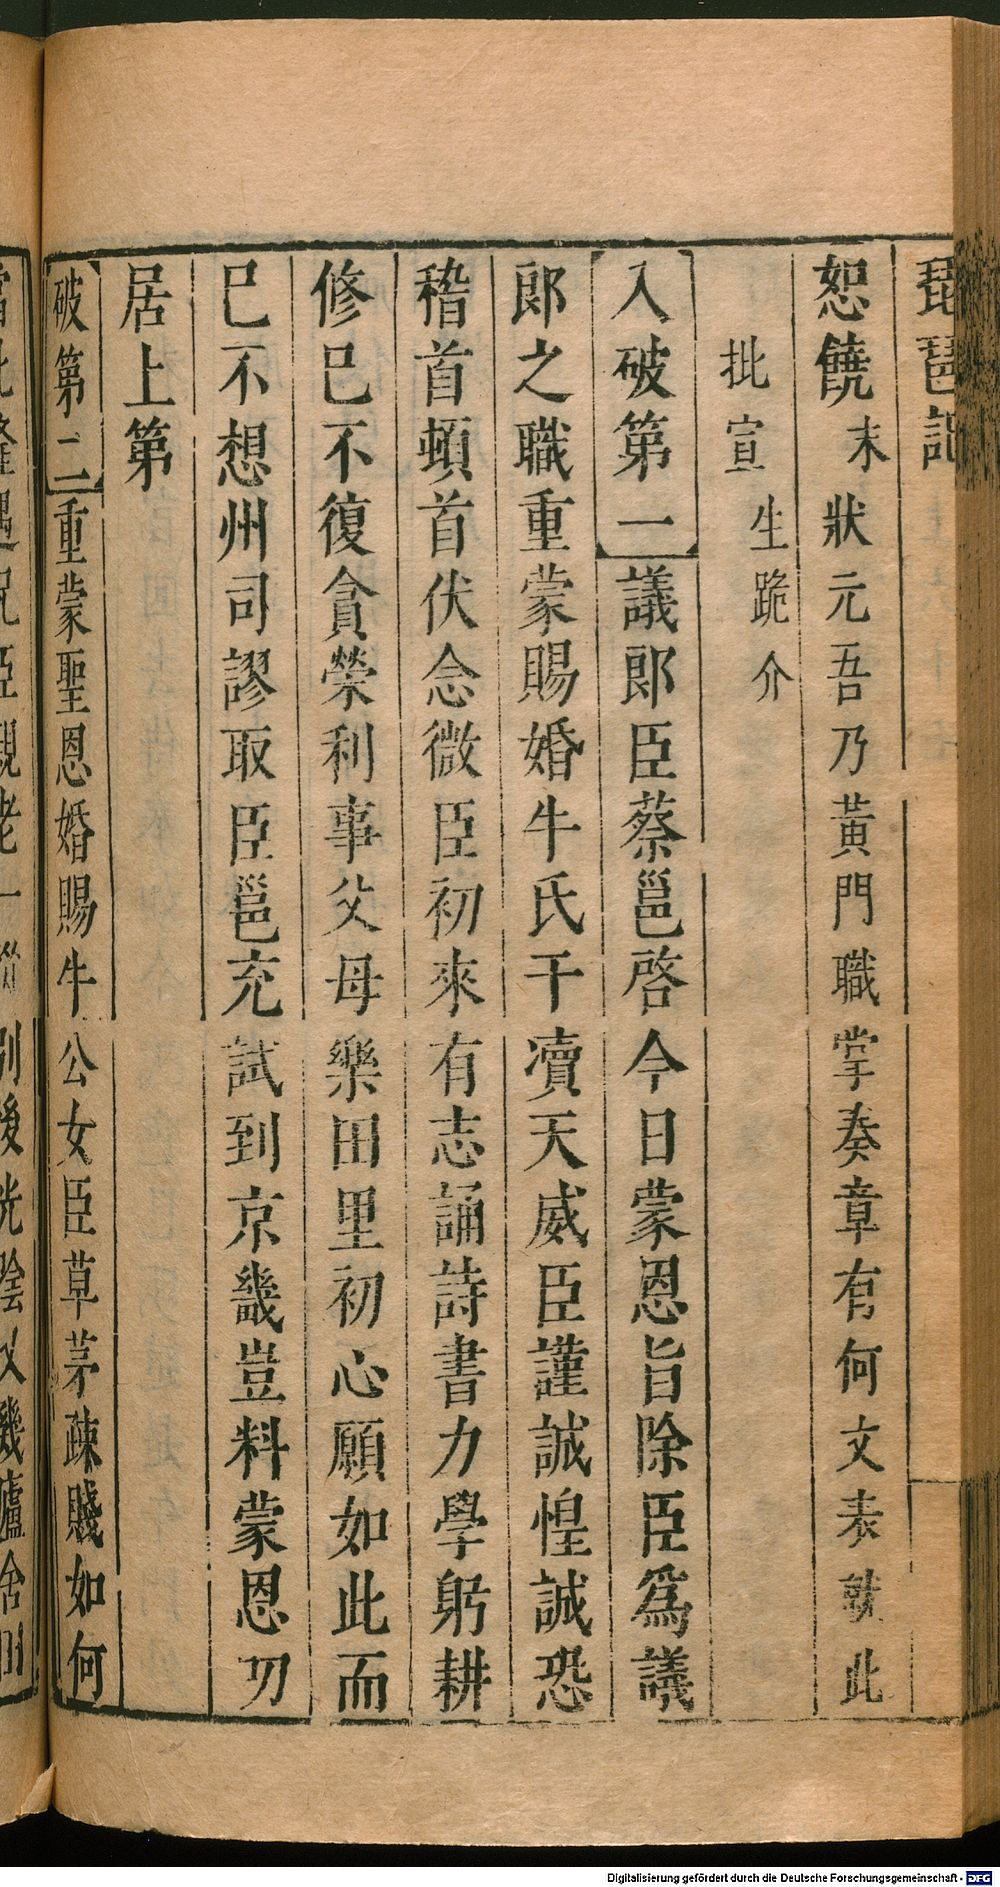 琵琶記
恕饒末狀元吾乃黃門職掌奏章有何文表就此
批宣生跪介
入破第一議郎臣蔡邕啓今日蒙恩旨除臣爲議
郎之職重蒙賜婚牛氏干凟天威臣謹誠惶誠恐
稽首頓首伏念微臣初來有志誦詩書力學躬耕
修巳不復貪榮利事父母樂田里初心願如此而
巳不想州司謬取臣邕充試到京畿豈料蒙恩叨
居上第
破第二重蒙聖恩婚賜牛公女臣草茅疎賤如何
當此隆遇況臣親老一從別後光陰又幾廬舍田
Digitalisierung gefördert durch die Deutsche Forschungsgemeinschaft - DFG